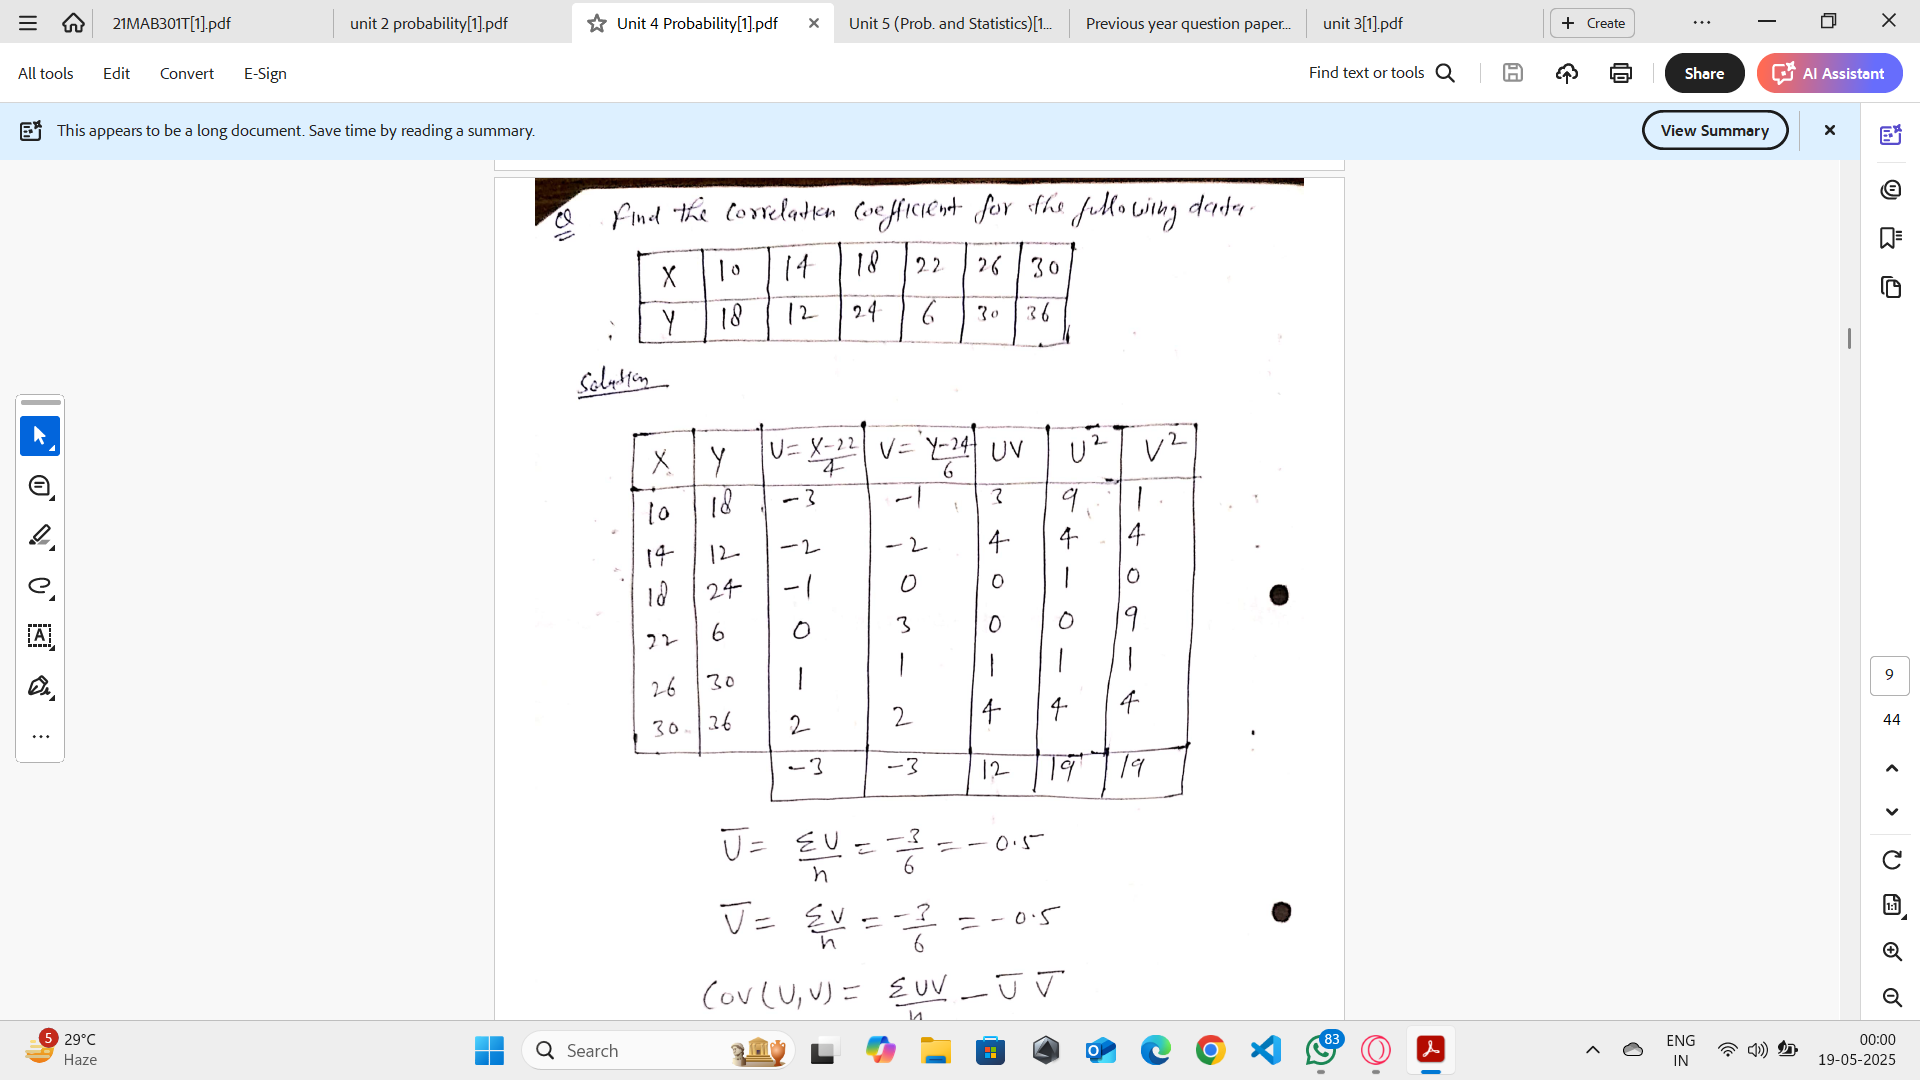 21MAB301T[1].pdf
unit 2 probability[1].pdf
Unit 4 Probability[1].pdf
Unit 5 (Prob. and Statistics)[1...
Previous year question paper...
unit 3[1].pdf
Create
All tools Edit Convert E-Sign
Find text or tools
Share
AI Assistant
This appears to be a long document. Save time by reading a summary.
View Summary
Q Find the correlation coefficient for the following data.
X 10 14 18 22 26 30
Y 18 12 24 6 30 36
Solution
X Y U = X-22/4 V = Y-24/6 UV U² V²
10 18 -3 -1 3 9 1
14 12 -2 -2 4 4 4
18 24 -1 0 0 1 0
22 6 0 3 0 0 9
26 30 1 1 1 1 1
30 36 2 2 4 4 4
-3 -3 12 19 19
U̅ = ΣU/n = -3/6 = -0.5
V̅ = ΣV/n = -3/6 = -0.5
Cov(U,V) = ΣUV/n - U̅ V̅
9
44
1:1
5
29°C
Haze
Search
83
ENG
IN
00:00
19-05-2025